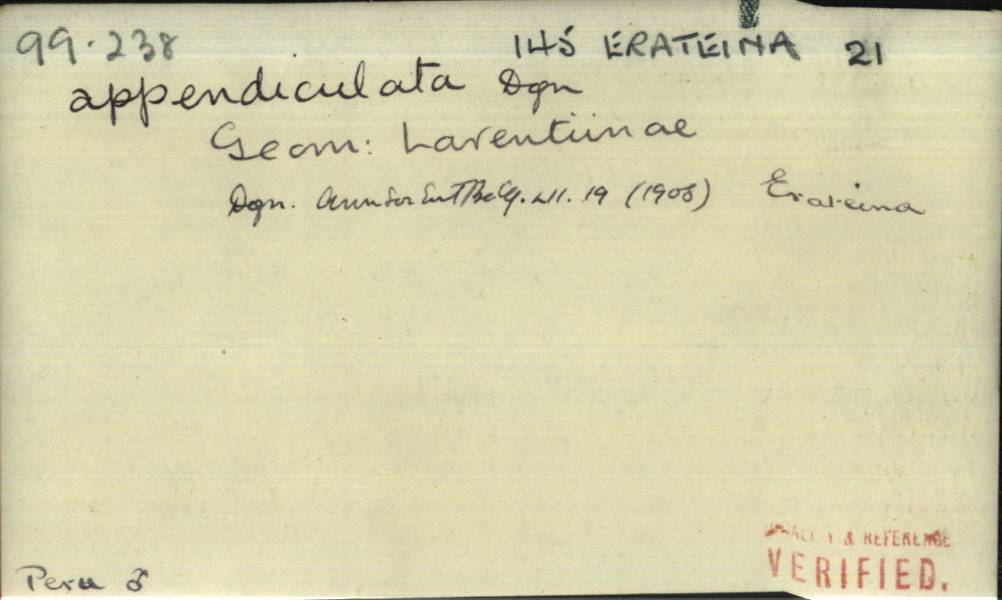 99·238 145 ERATEINA 21
appendiculata Dgn
Geom: Larentiinae
Dgn. Ann Soc Ent Belg. 19 (1908) Erateina
& REFERENCE
VERIFIED.
Peru ♂